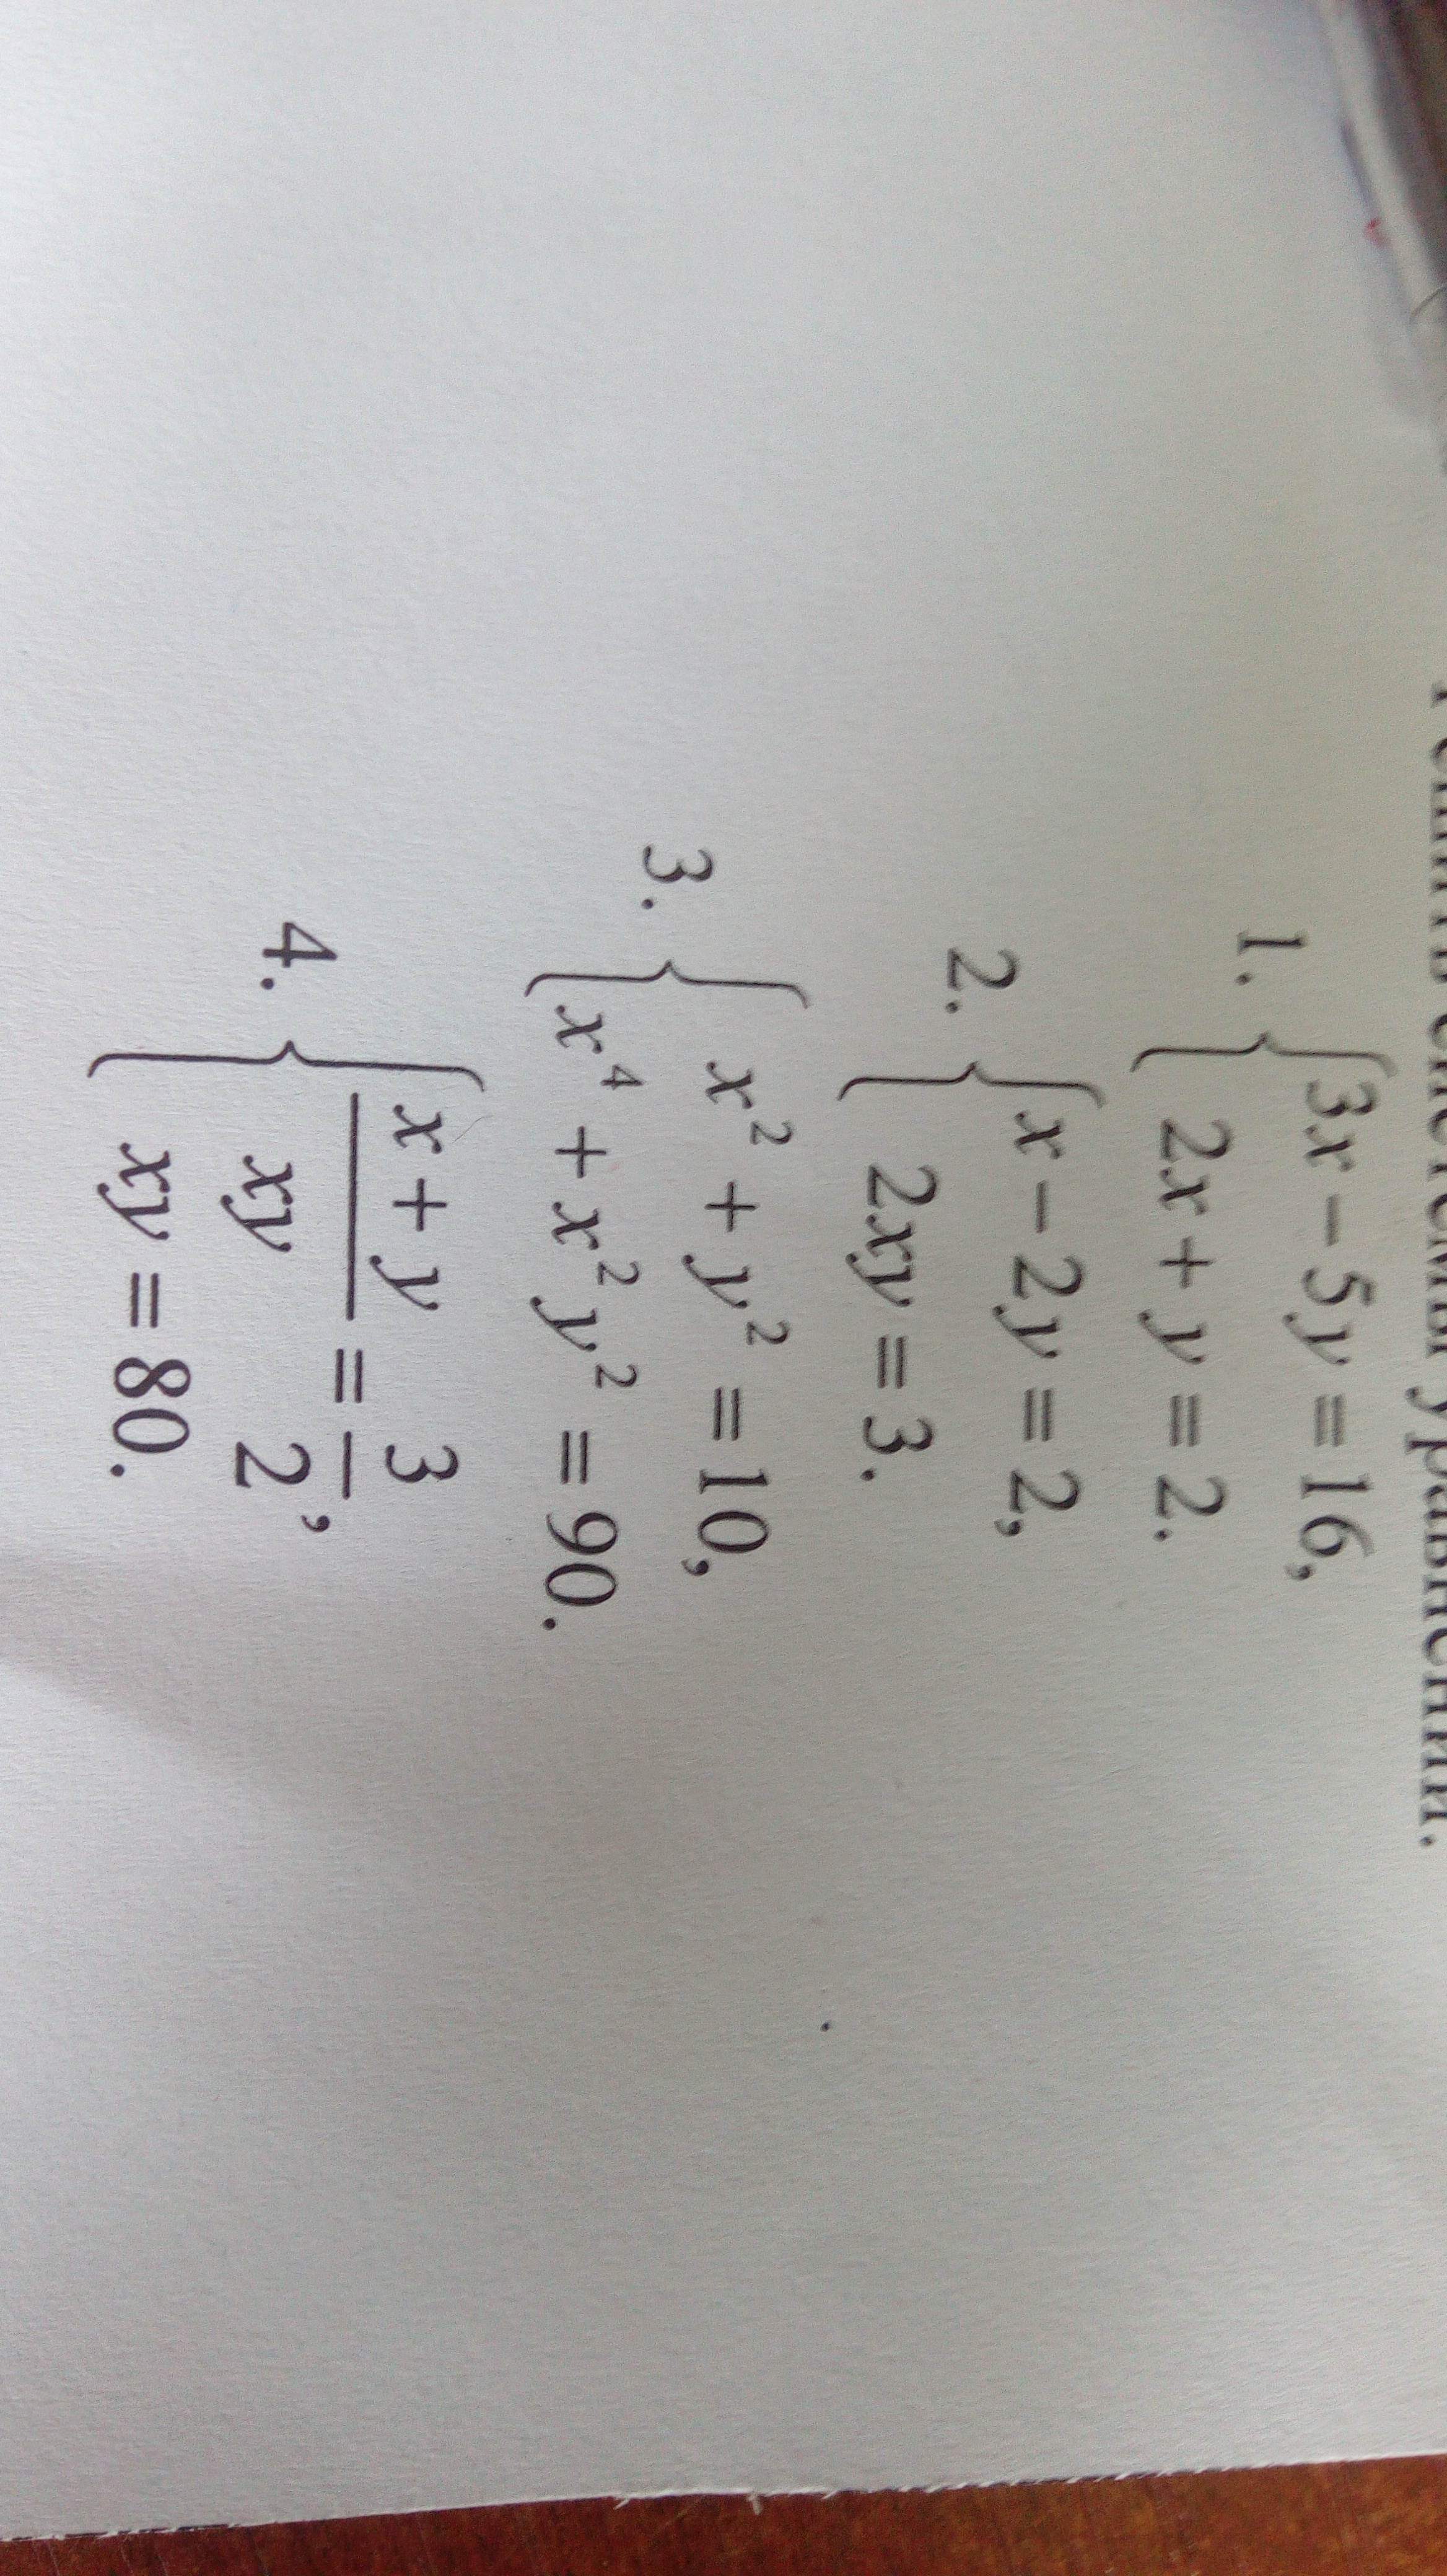 системы уравнений.
1. { 3x − 5y = 16,
2x + y = 2.
2. { x − 2y = 2,
2xy = 3.
3. { x² + y² = 10,
x⁴ + x²y² = 90.
4. { (x + y)/(xy) = 3/2,
xy = 80.